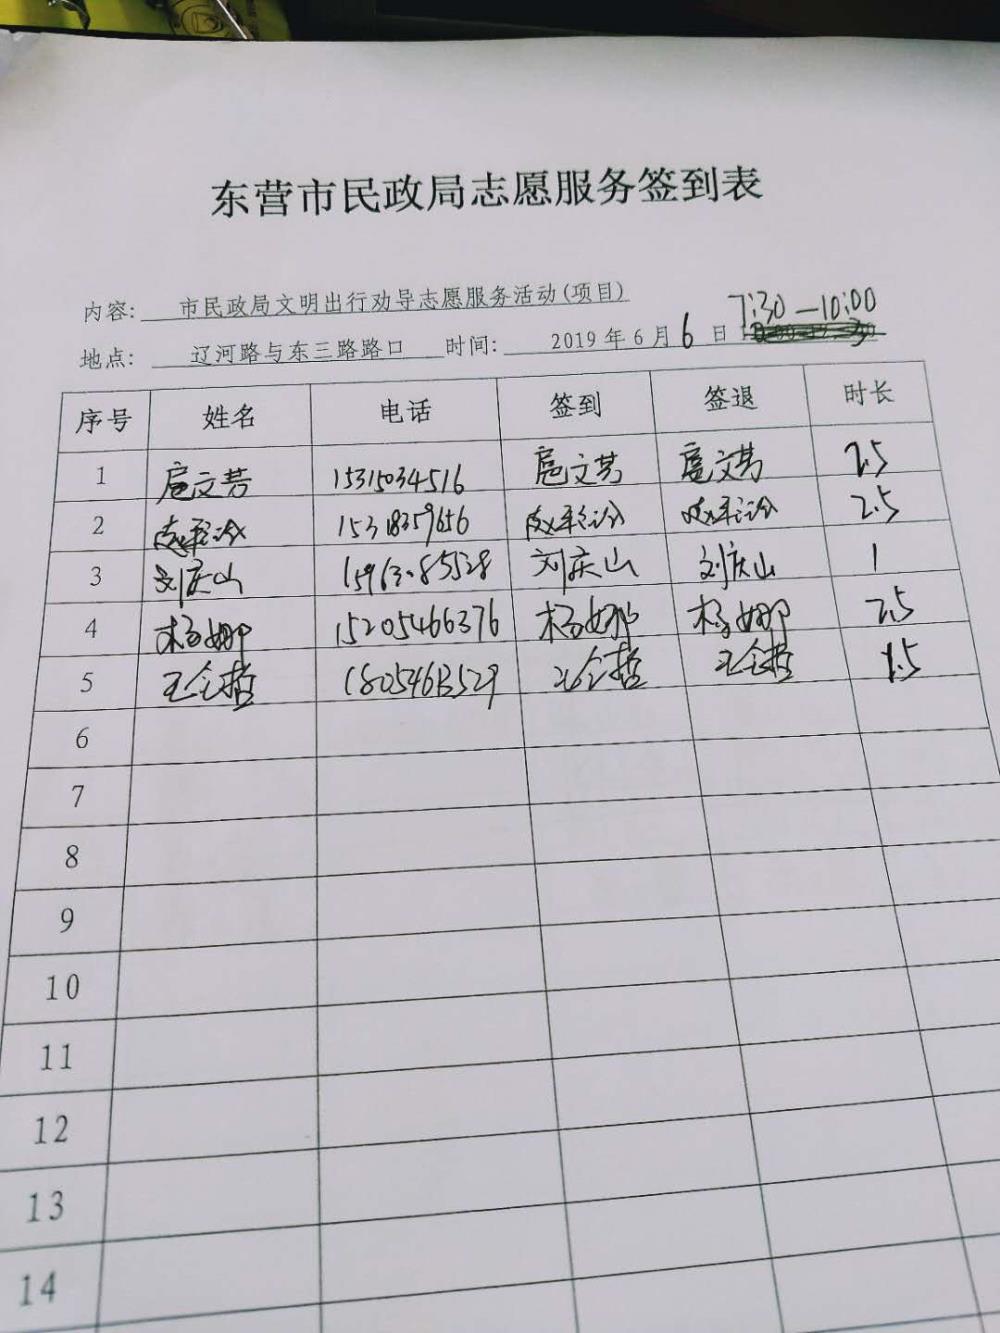 东营市民政局志愿服务签到表
内容: 市民政局文明出行劝导志愿服务活动(项目)
地点: 辽河路与东三路路口 时间: 2019年6月6日 7:30—10:00
序号 姓名 电话 签到 签退 时长
1 扈文芳 15315034516 扈文芳 扈文芳 2.5
2 15318359656 2.5
3 刘庆山 15963085528 刘庆山 刘庆山 1
4 杨娜 15205466376 杨娜 杨娜 2.5
5 王全哲 18054613529 王全哲 王全哲 1.5
6
7
8
9
10
11
12
13
14